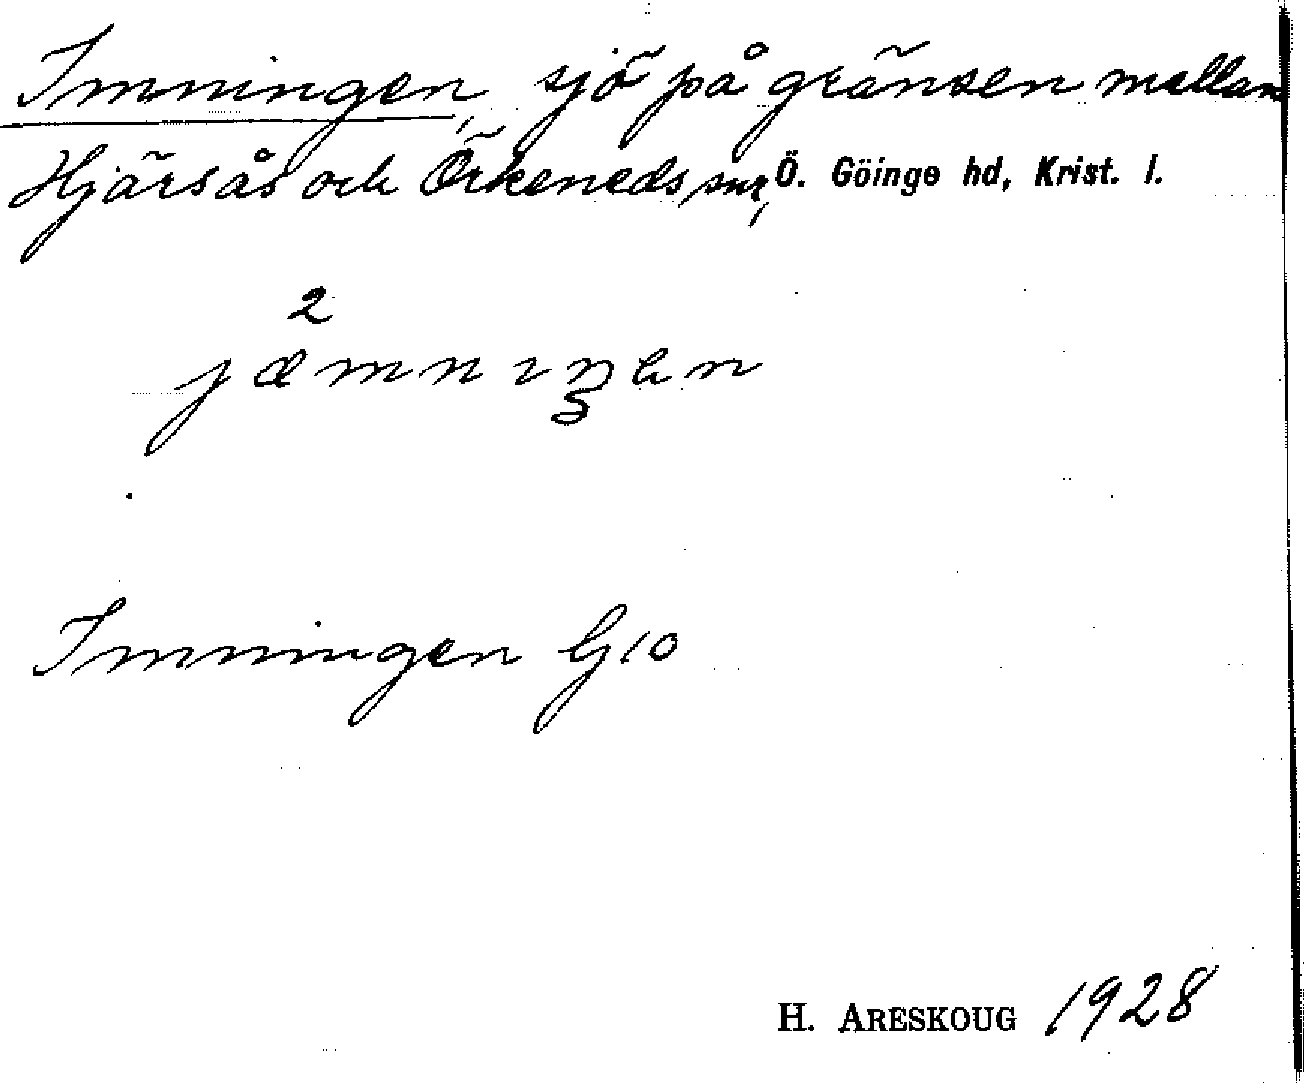 Immingen, sjö på gränsen mellan
Hjärsås och Örkeneds snr, Ö. Göinge hd, Krist. l.
2
jæmnıŋen
Immingen G10
H. ARESKOUG 1928